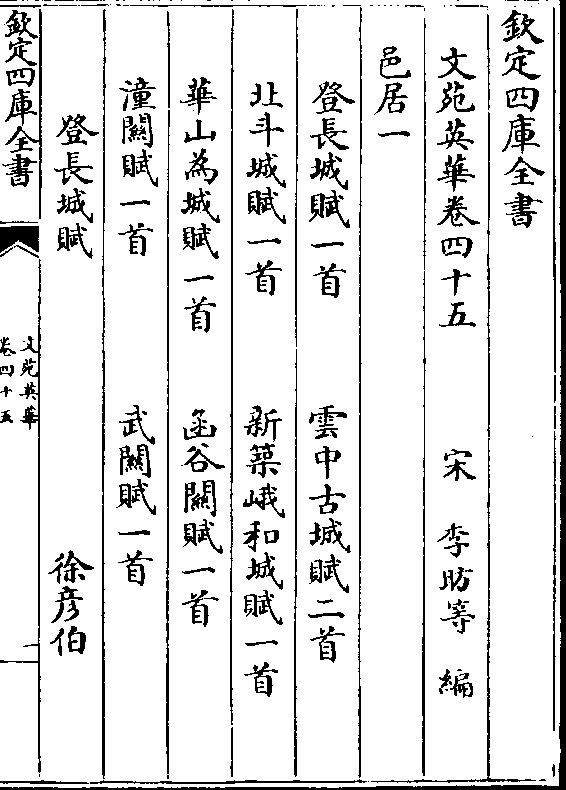 欽定四庫全書
文苑英華卷四十五　宋　李昉等　編
邑居一
登長城賦一首　雲中古城賦二首
北斗城賦一首　新築峨和城賦一首
華山為城賦一首　函谷關賦一首
潼關賦一首　武關賦一首
登長城賦　徐彦伯
欽定四庫全書
文苑英華
卷四十五
一